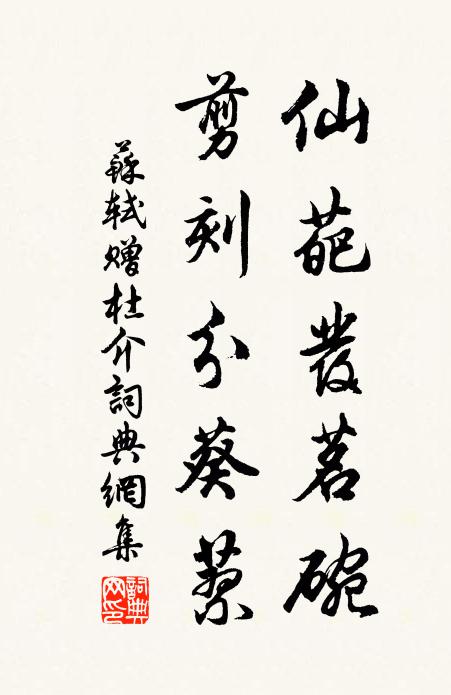 仙葩發茗碗
剪刻分葵蓼
蘇軾贈杜介詞典網集
詞典网印